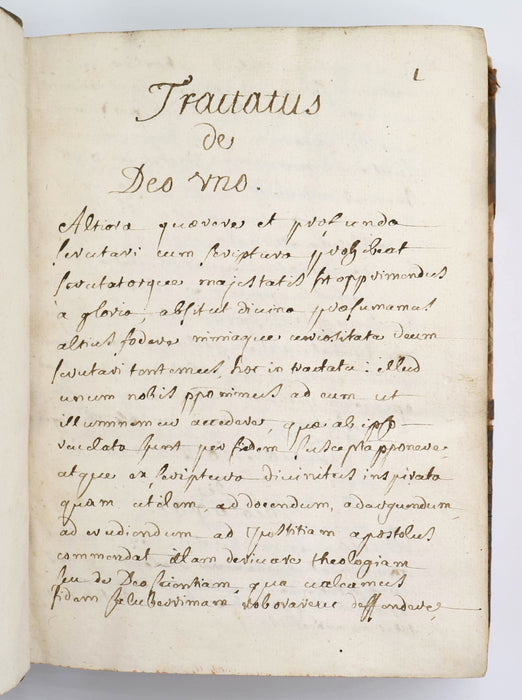 1
Tractatus
de
Deo vno.
Altiora quærere et profunda
scrutari cum scriptura prohibeat
scrutatorque majestatis sit opprimendus
à gloria, absit ut divina præsumamus
altius fodere nimiaque curiositate deum
scrutari tentemus, hoc in tractatu: illud
unum nobis pponimus ad eum ut
illuminemur accedere, quæ ab ipso
revelata sunt per fidem suscepta pponere
atque ex scriptura divinitus inspirata
quam utilem, ad docendum, ad arguendum,
ad erudiendum ad justitiam apostolus
commendat, illam derivare theologiam
seu de Deo scientiam, qua valeamus
fidem saluberrimam roborare deffendere